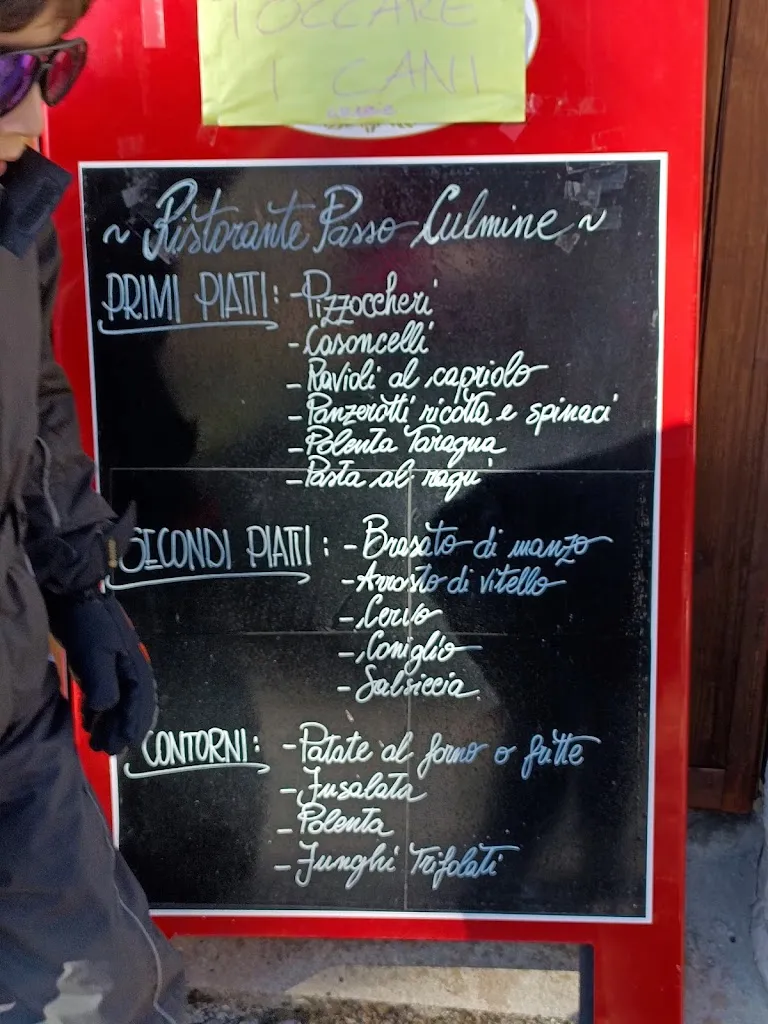 TOCCARE
I CANI
GRAZIE
~ Ristorante Passo Culmine ~
PRIMI PIATTI: - Pizzoccheri
- Casoncelli
- Ravioli al capriolo
- Panzerotti ricotta e spinaci
- Polenta Taragna
- Pasta al ragu'
SECONDI PIATTI: - Brasato di manzo
- Arrosto di vitello
- Cervo
- Coniglio
- Salsiccia
CONTORNI: - Patate al forno o fritte
- Insalata
- Polenta
- Funghi Trifolati